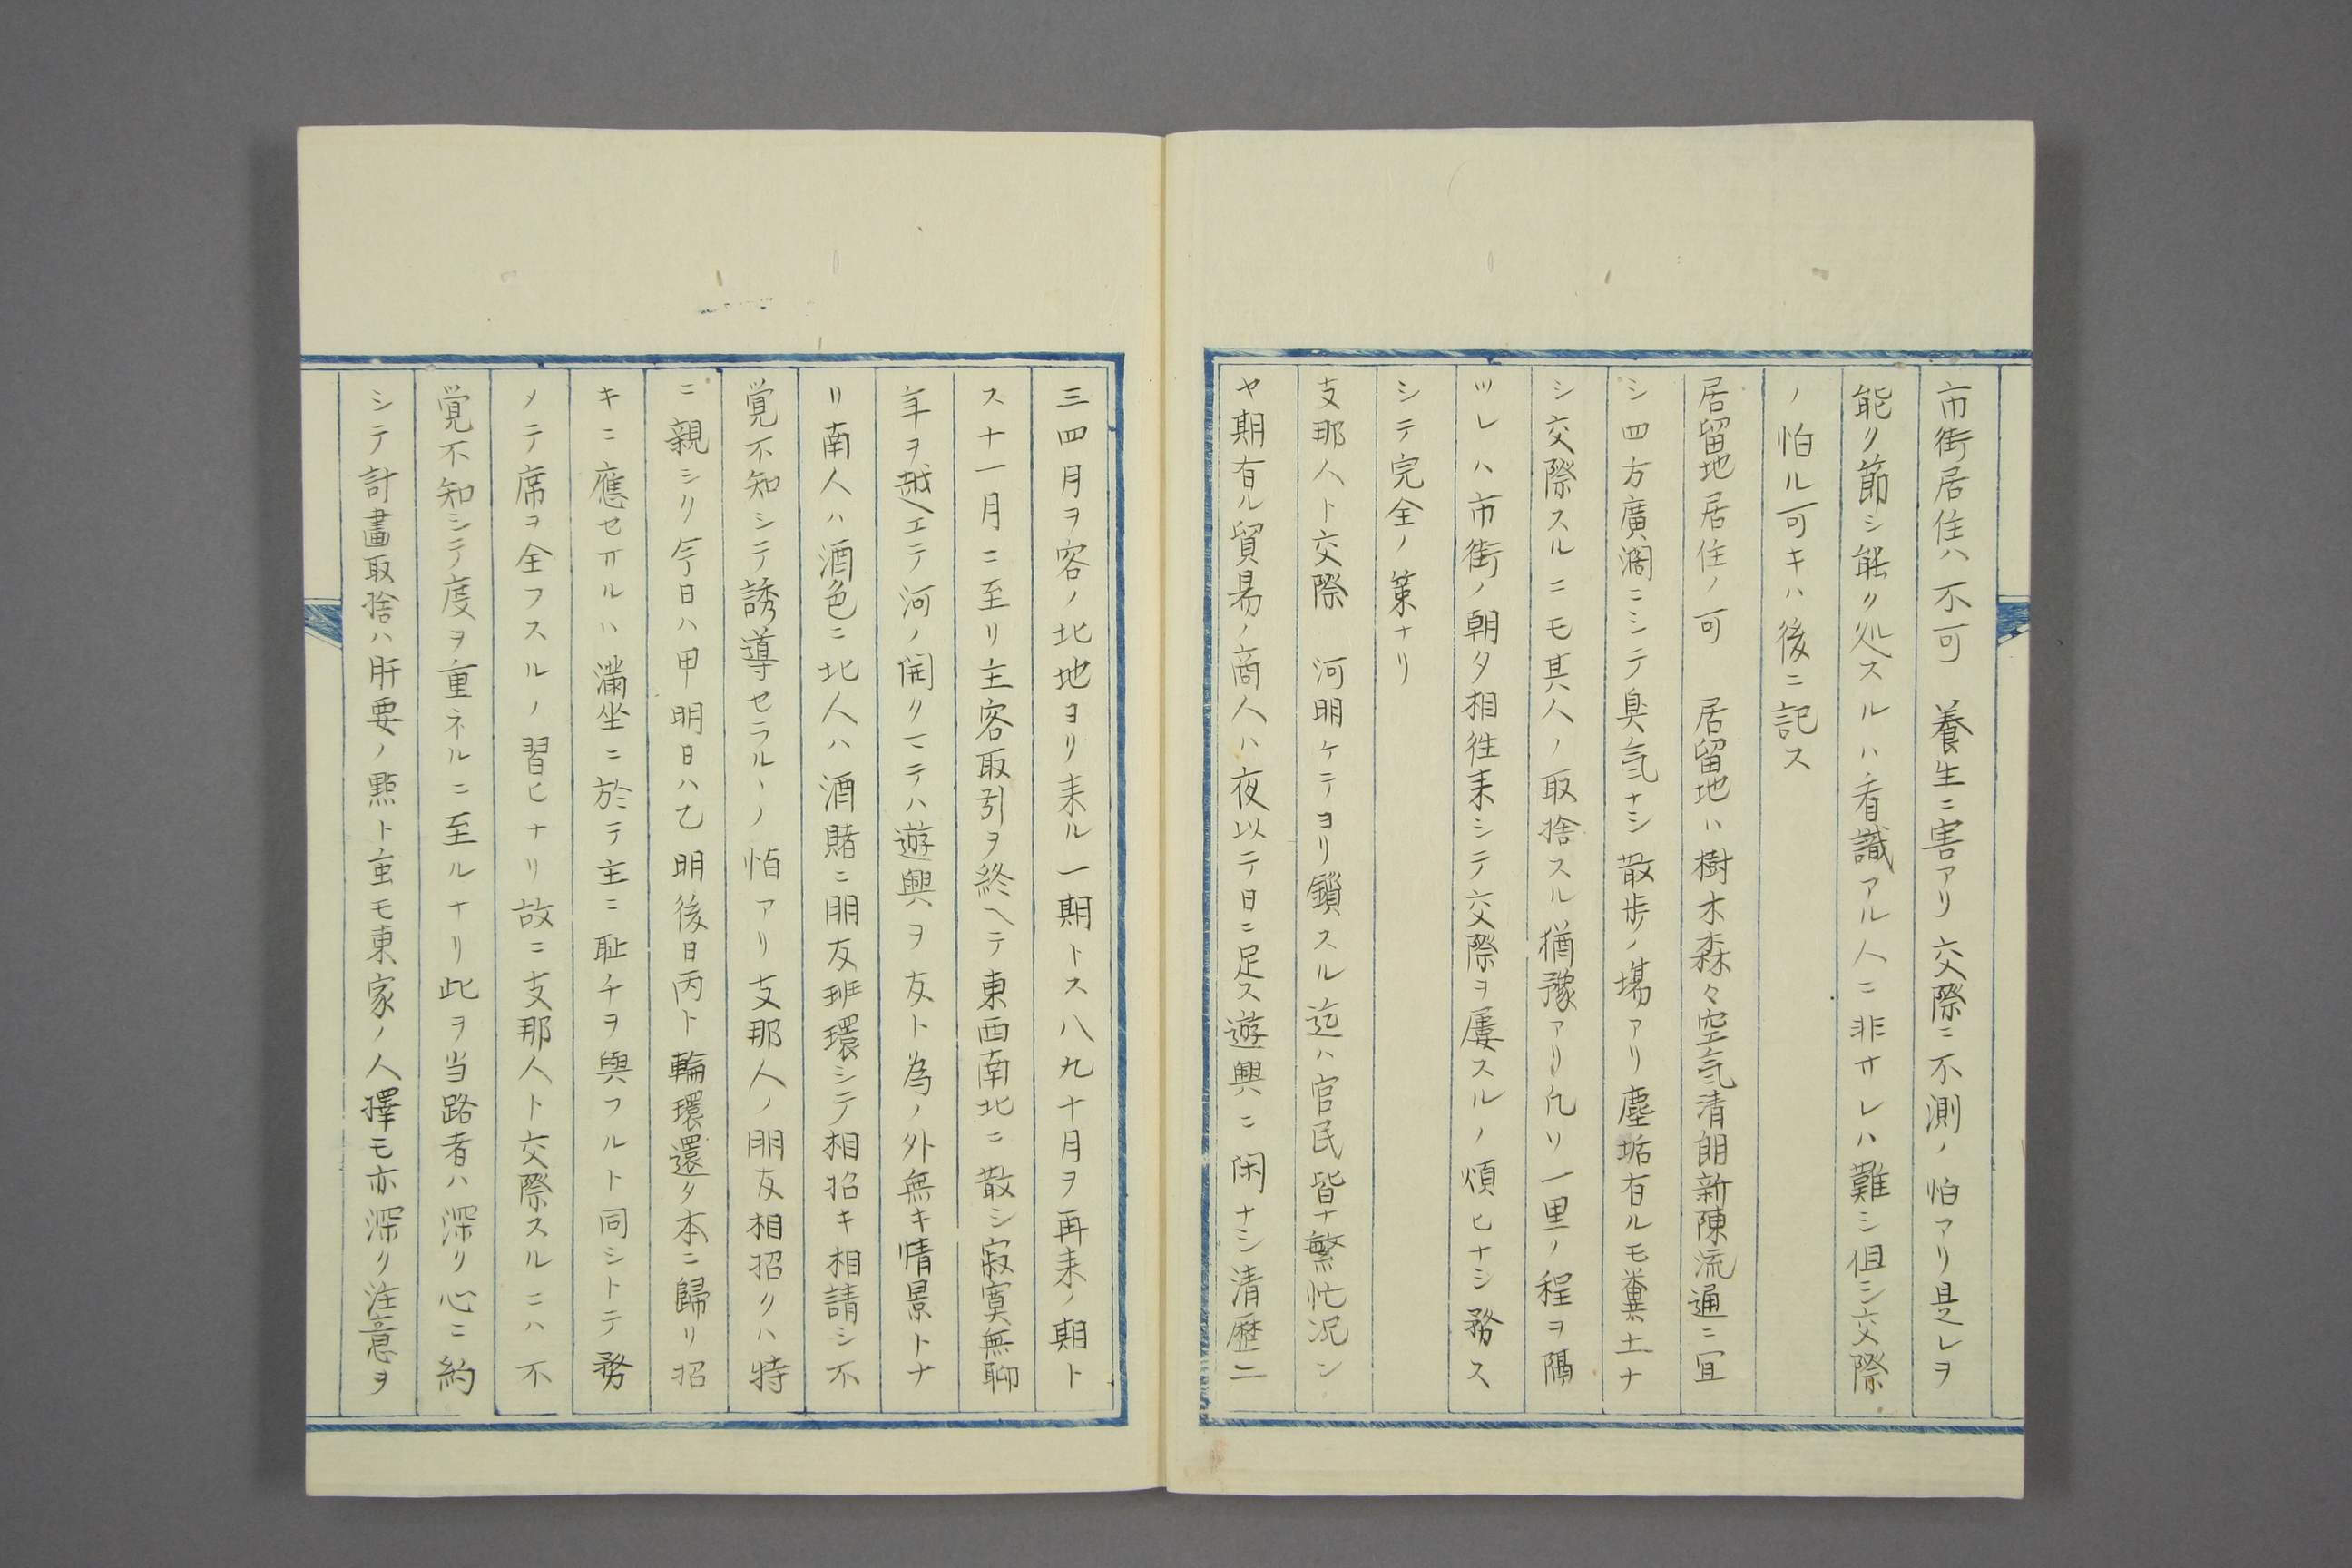 市街居住ハ不可　養生ニ害アリ交際ニ不測ノ怕アリ是レヲ
能ク節シ能ク処スルハ看識アル人ニ非サレハ難シ但シ交際
ノ怕ル可キハ後ニ記ス
居留地居住ノ可　居留地ハ樹木森々空気清朗新陳流通ニ宜
シ四方廣濶ニシテ臭気ナシ散歩ノ場アリ塵垢有ルモ糞土ナ
シ交際スルニモ其人ノ取捨スル猶豫アリ凢ソ一里ノ程ヲ隔
ツレハ市街ノ朝夕相徃来シテ交際ヲ屡スルノ煩ヒナシ務ス
シテ完全ノ策ナリ
支那人ト交際　河明ケテヨリ鎖スル迄ハ官民皆ナ繁忙况ン
ヤ期有ル貿易ノ商人ハ夜以テ日ニ足ス遊興ニ閑ナシ清歴二
三四月ヲ客ノ北地ヨリ来ル一期トス八九十月ヲ再来ノ期ト
ス十一月ニ至リ主客取引ヲ終ヘテ東西南北ニ散シ寂寞無聊
年ヲ越エテ河ノ開クマテハ遊興ヲ友ト為ノ外無キ情景トナ
リ南人ハ酒色ニ北人ハ酒賭ニ朋友班環シテ相招キ相請シ不
覚不知シテ誘導セラルヽノ怕アリ支那人ノ朋友相招クハ特
ニ親シク今日ハ甲明日ハ乙明後日丙ト輪環還タ本ニ歸リ招
キニ應セサルハ滿坐ニ於テ主ニ耻チヲ與フルト同シトテ務
メテ席ヲ全フスルノ習ヒナリ故ニ支那人ト交際スルニハ不
覚不知シテ度ヲ重ネルニ至ルナリ此ヲ当路者ハ深ク心ニ約
シテ計畫取捨ハ肝要ノ點ト重モ東家ノ人擇モ亦深ク注意ヲ